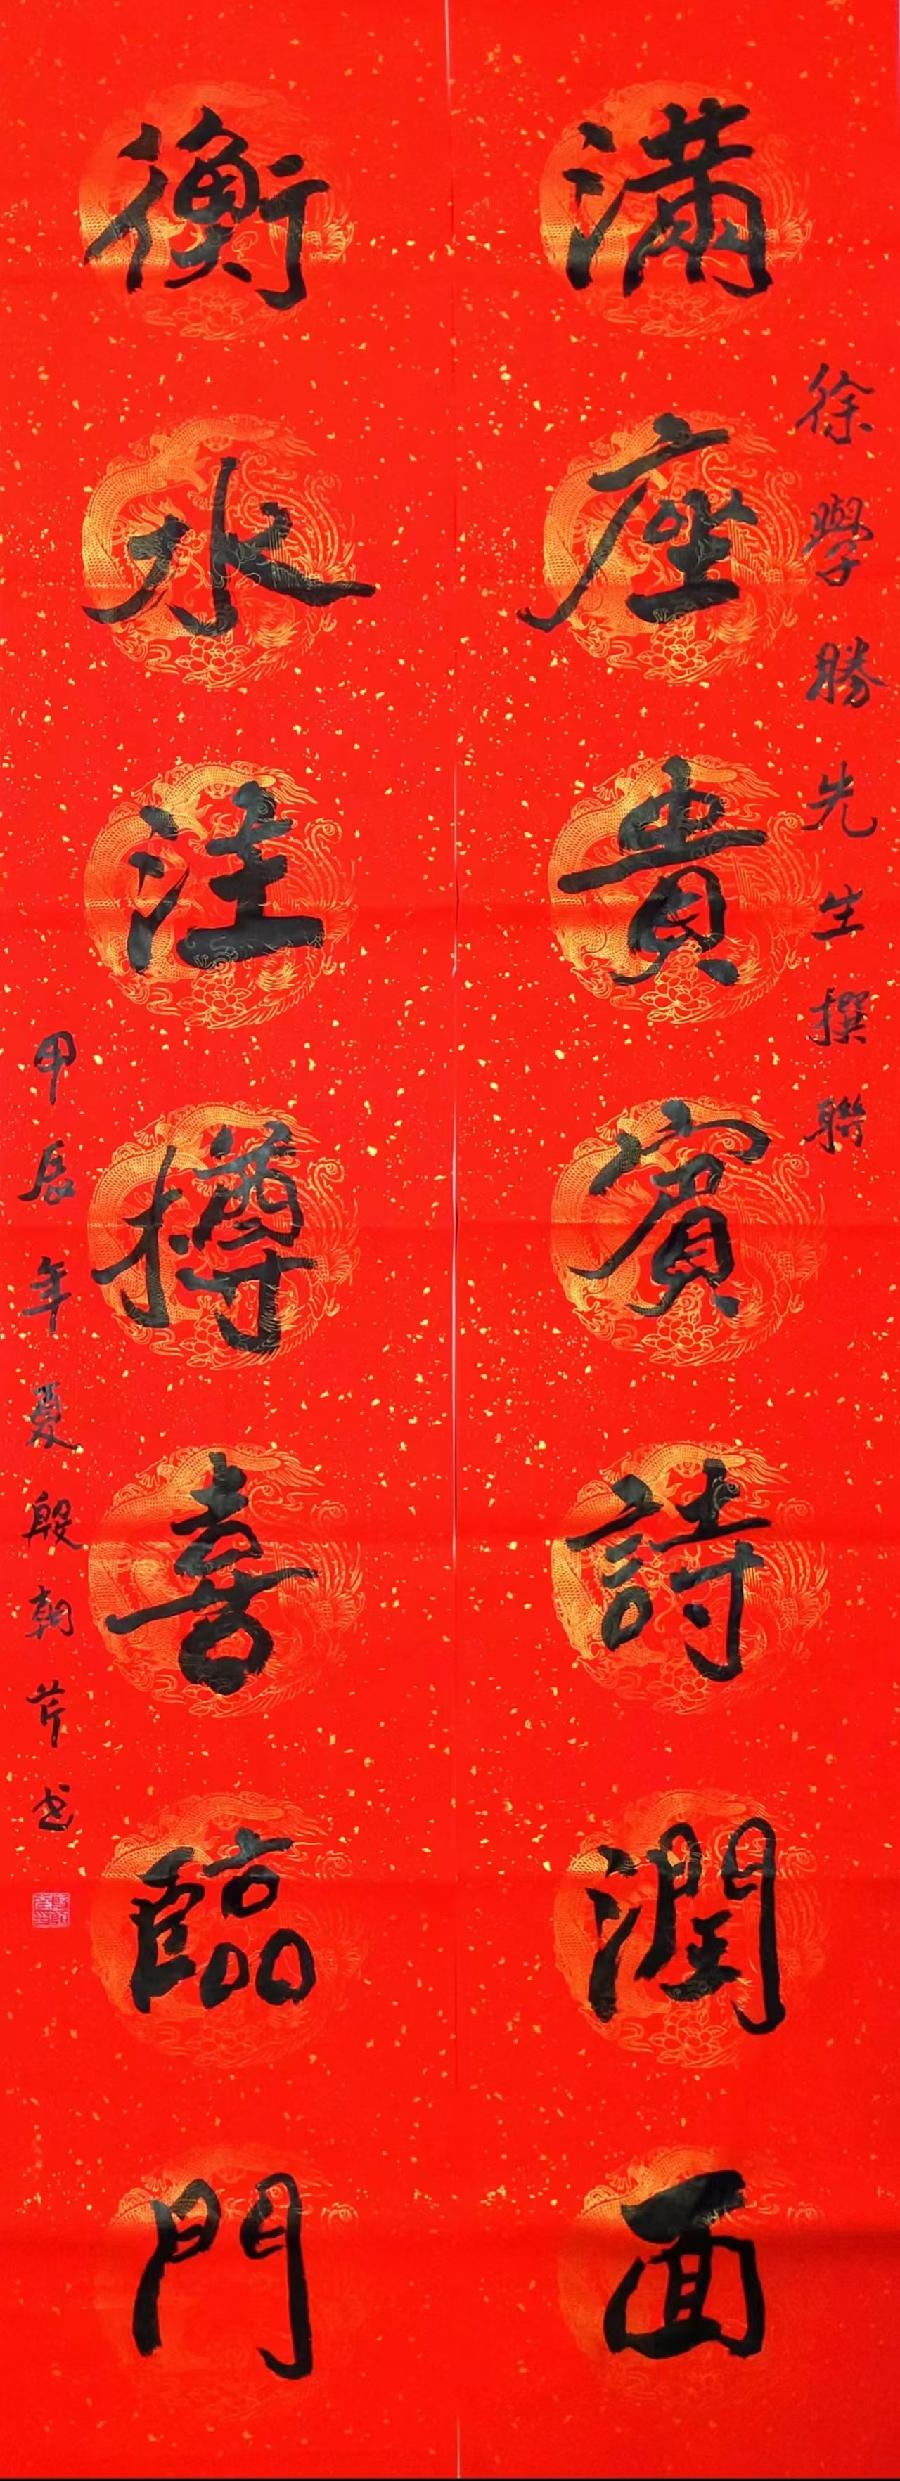 徐學勝先生撰聯
滿座貴賓詩潤面
衡水注樽喜臨門
甲辰年夏殷朝芹书